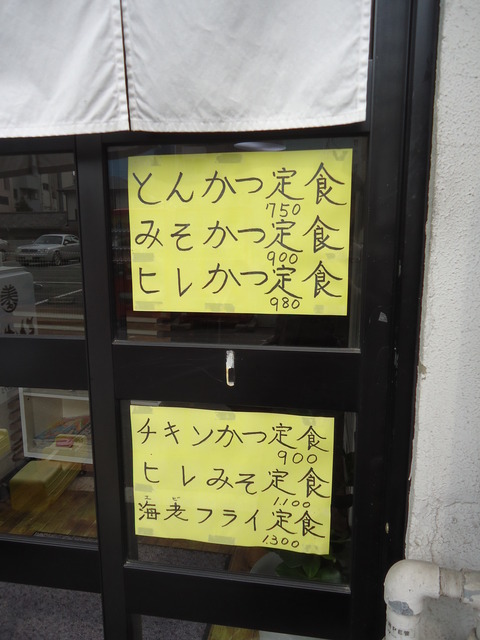 とんかつ定食
750
みそかつ定食
900
ヒレかつ定食
980
チキンかつ定食
900
ヒレみそ定食
1100
エビ
海老フライ定食
1300